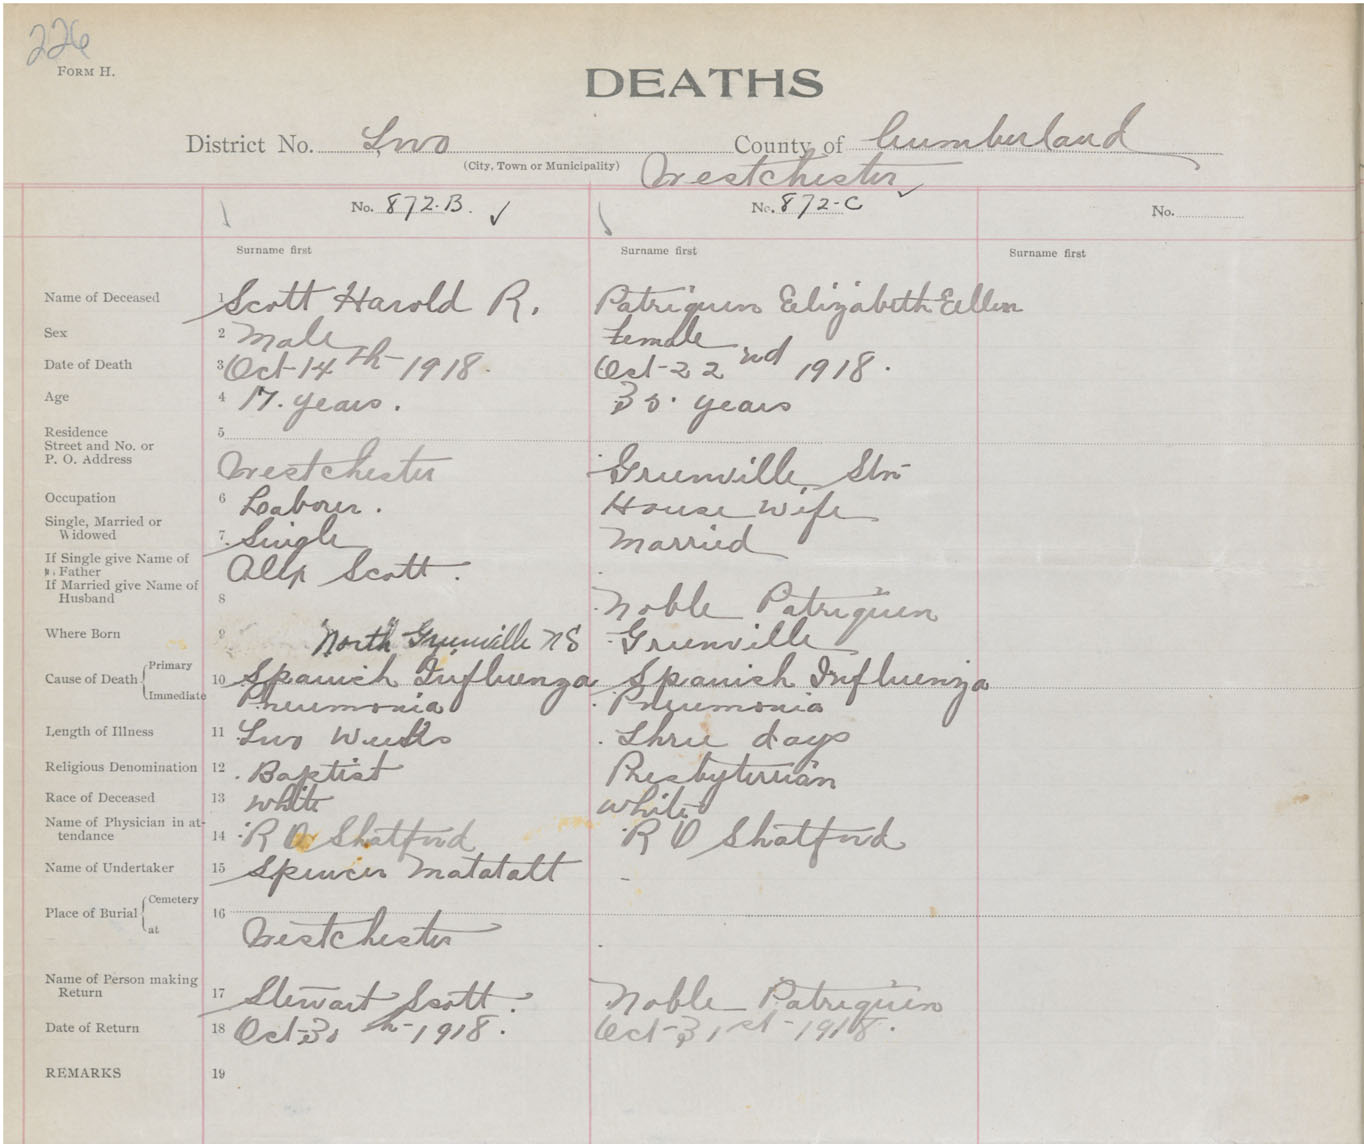 226
FORM H.
DEATHS
District No. Two County of Cumberland
(City, Town or Municipality) Westchester
No. 872-B. ✓ No. 872-C ✓ No.
Surname first Surname first Surname first
Name of Deceased 1 Scott Harold R. Patriquin Elizabeth Ellen
Sex 2 Male Female
Date of Death 3 Oct-14th-1918. Oct-22nd 1918.
Age 4 17. years. years
Residence 5
Street and No. or
P. O. Address Westchester Greenville Stn
Occupation 6 Laborer. House wife
Single, Married or
Widowed 7 Single Married
If Single give Name of
Father Alex Scott.
If Married give Name of
Husband 8 Noble Patriquin
Where Born 9 "North" Greenville NS Greenville
Cause of Death Primary 10 Spanish Influenza Spanish Influenza
Immediate Pneumonia Pneumonia
Length of Illness 11 Two Weeks Three days
Religious Denomination 12 Baptist Presbyterian
Race of Deceased 13 White White
Name of Physician in at-
tendance 14 R O Shatford R O Shatford
Name of Undertaker 15 Spencer Matatall -
Place of Burial Cemetery 16
at Westchester
Name of Person making
Return 17 Stewart Scott. Noble Patriquin
Date of Return 18 Oct-30th-1918. Oct-31st-1918.
REMARKS 19